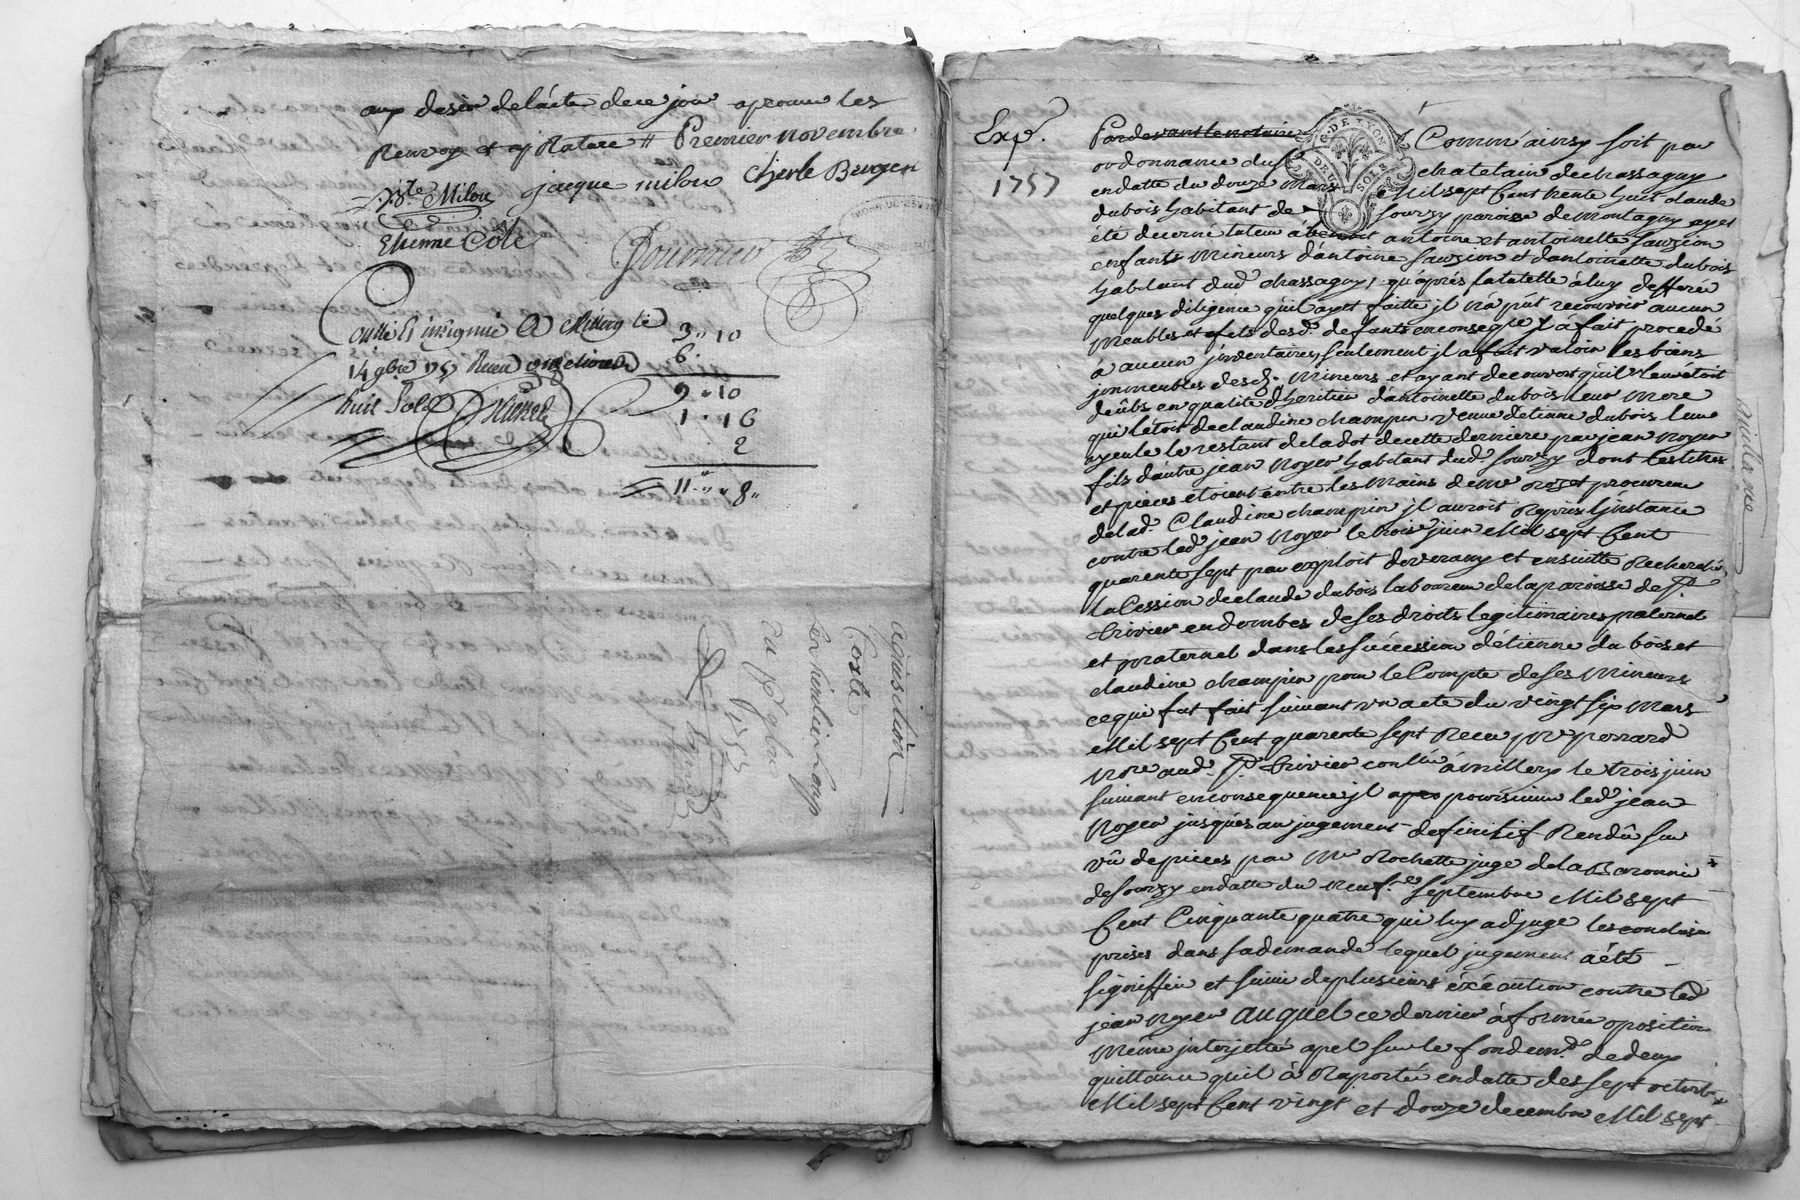 aux desir de lacte de ce jour aprouvé les
Renvoy et Premier novembre
Milou jacque milou Cherle Berger
Etienne Côte Fournier
Millery le 3 " 10
14 9bre 1757 Receu 6
huit Sols 9 " 10
1 " 16
2
11 " " 8 "
aquisition
Coste
Du 1er 9bre
1755
Exp.
1757
Pardevant le notaire G. DE LYON Comm' ainsy soit par
DEUX SOLS
ordonnance du chatelain de chassagny
en datte du douze Mars Mil sept Cent trente huit claude
dubois habitant de Sourzy paroisse de Montagny ayet
été decerné tuteur à benoit antoine et antoinette fauzion
enfants Mineurs d'antoine fauzion et d'antoinette dubois
habitant dud. chassagny, qu'après la tutelle à luy defferée
quelques diligence qu'il ayet faitte jl na put recouvrir aucun
Meubles et effets desd. defunts en conseqce jl à fait procedé
à aucun jnventaires, seulement jl a fait valoir les biens
jmmeubles desd. Mineurs et ayant decouvert qu'il leur étoit
deûbs en qualité d'heritier d'antoinette dubois leur Mere
qui l'étoit de claudine champin veuve d'etienne dubois leur
ayeule le restant de la dot de cette derniere par jean Noyer
fils d'autre jean Noyer habitant dud. sourzy dont les titres
et pieces étoient entre les Mains de Me Rozet procureur
de lad. Claudine champin jl auroit Repris l'jnstance
contre led. jean Noyer le trois juin Mil sept Cent
quarente sept par exploit de verany et ensuitte Recherché
la Cession de claude dubois laboureur de la paroisse de St
trivier en dombes de ses droits legitimaires paternel
et Maternel dans les sucession d'étienne du bois et
claudine champin pour le Compte de ses Mineurs
ce qui fut fait suivant un acte du vingt six Mars
Mil sept Cent quarente sept Receu par perrard
Nore aud. St trivier conllé à Millery le trois juin
suivant en consequence jl a poursuivi led. jean
Noyer jusqués au jugement definitif Rendû sur
vû de pieces par Me Rochette juge de la Baronnie
de sourzy en datte du neuf septembre Mil sept
Cent Cinquante quatre qui luy adjuge les conclusions
prises dans sa demande lequel jugement à été
signiffié et suivi de plusieurs éxécution contre led.
jean Noyer auquel ce dernier à formée oposition
Même jnterjetté apel sur le fondemt. de deux
quittance qu'il à Raporté en datte des sept octobre
Mil sept Cent vingt et douze decembre Mil sept
Quittance